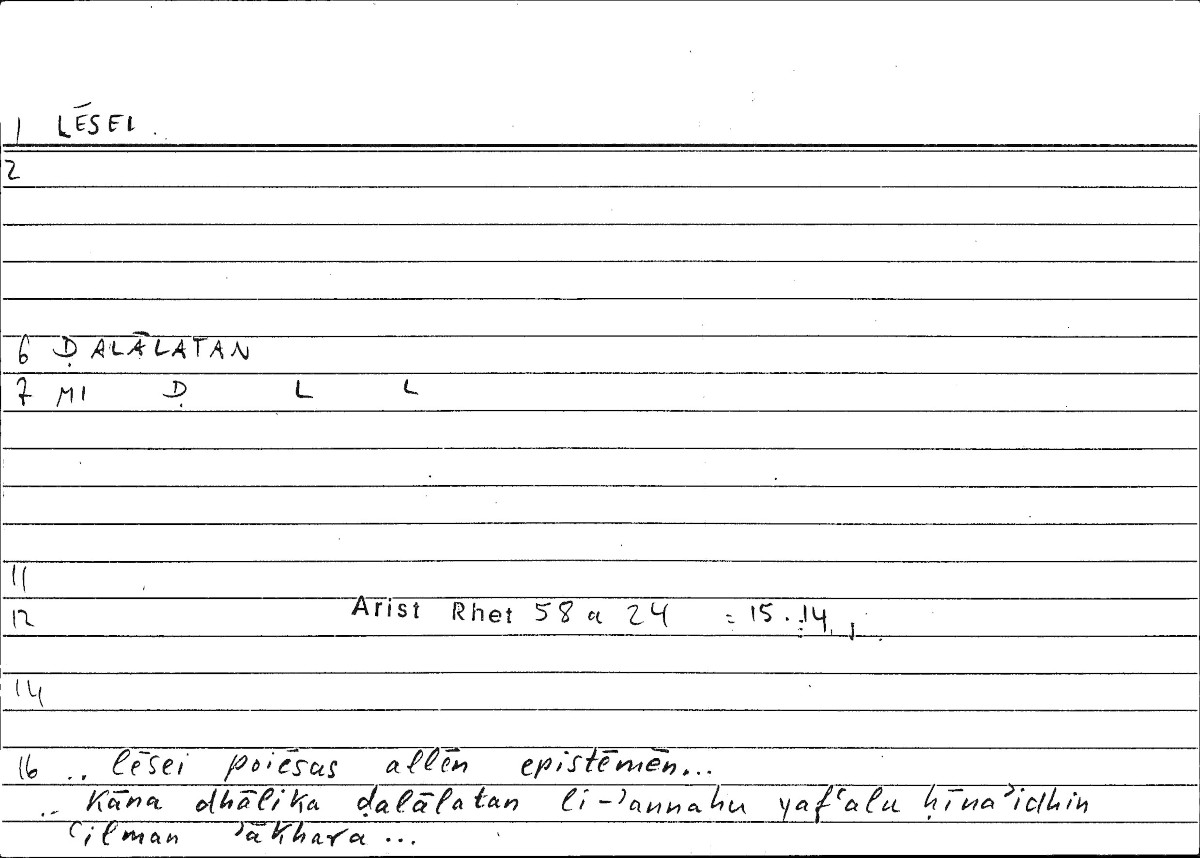 1 LĒSEI
2
6 ḌALĀLATAN
7 MI Ḍ L L
11
12 Arist Rhet 58 a 24 = 15.14
14
16 .. lēsei poiēsas allēn epistēmēn...
.. kāna dhālika ḍalālatan li-ʾannahu yafʿalu ḥīnaʾidhin
ʿilman ʾākhara ...